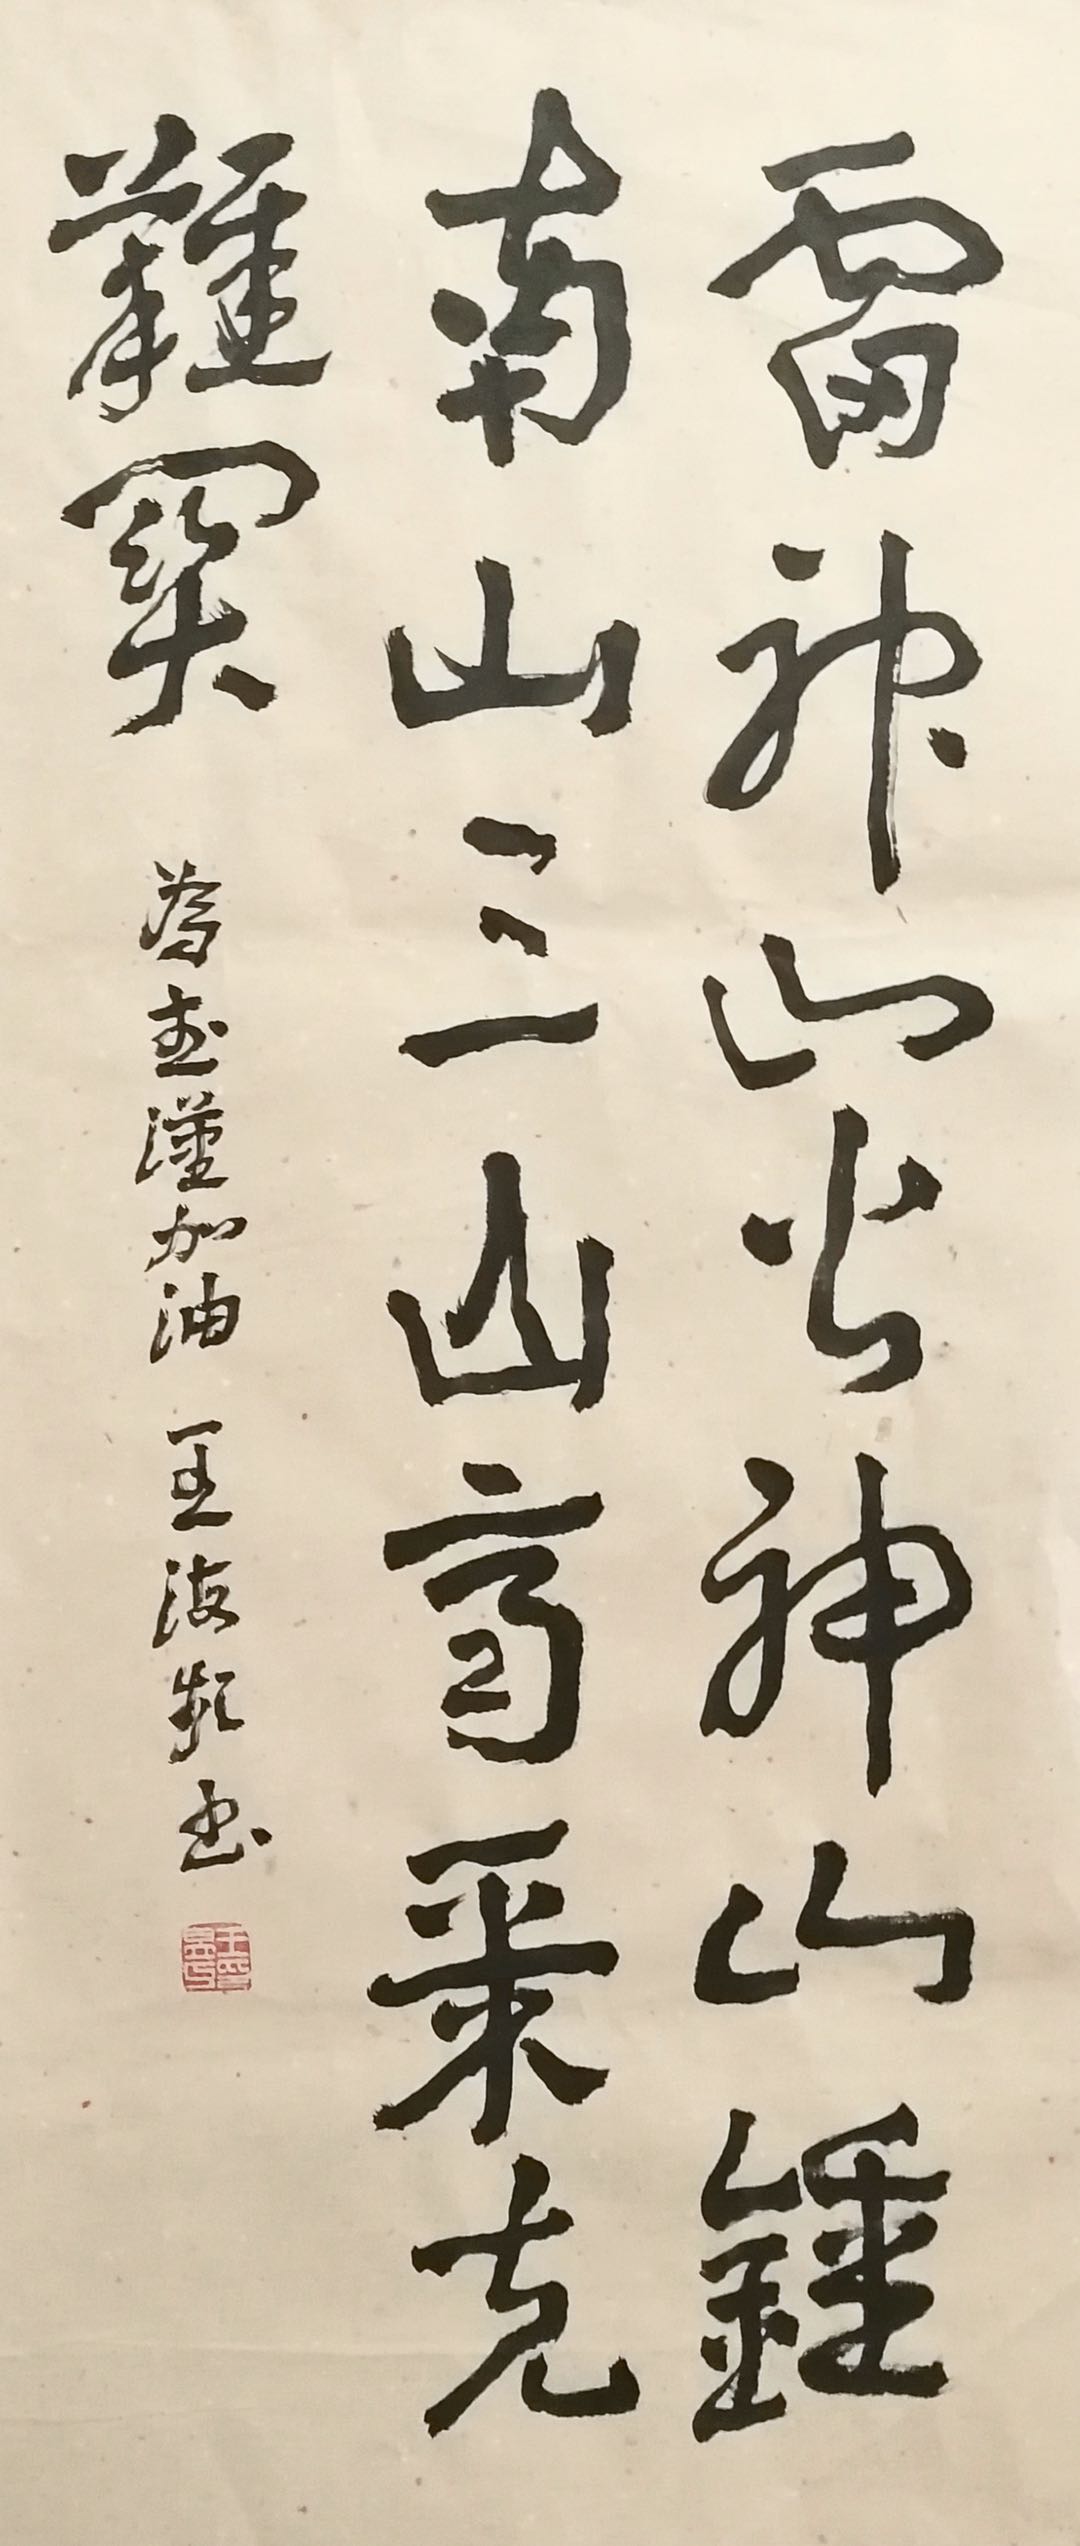 雷神山火神山鍾
南山三山齊来克
難関
為武漢加油 王海敏书